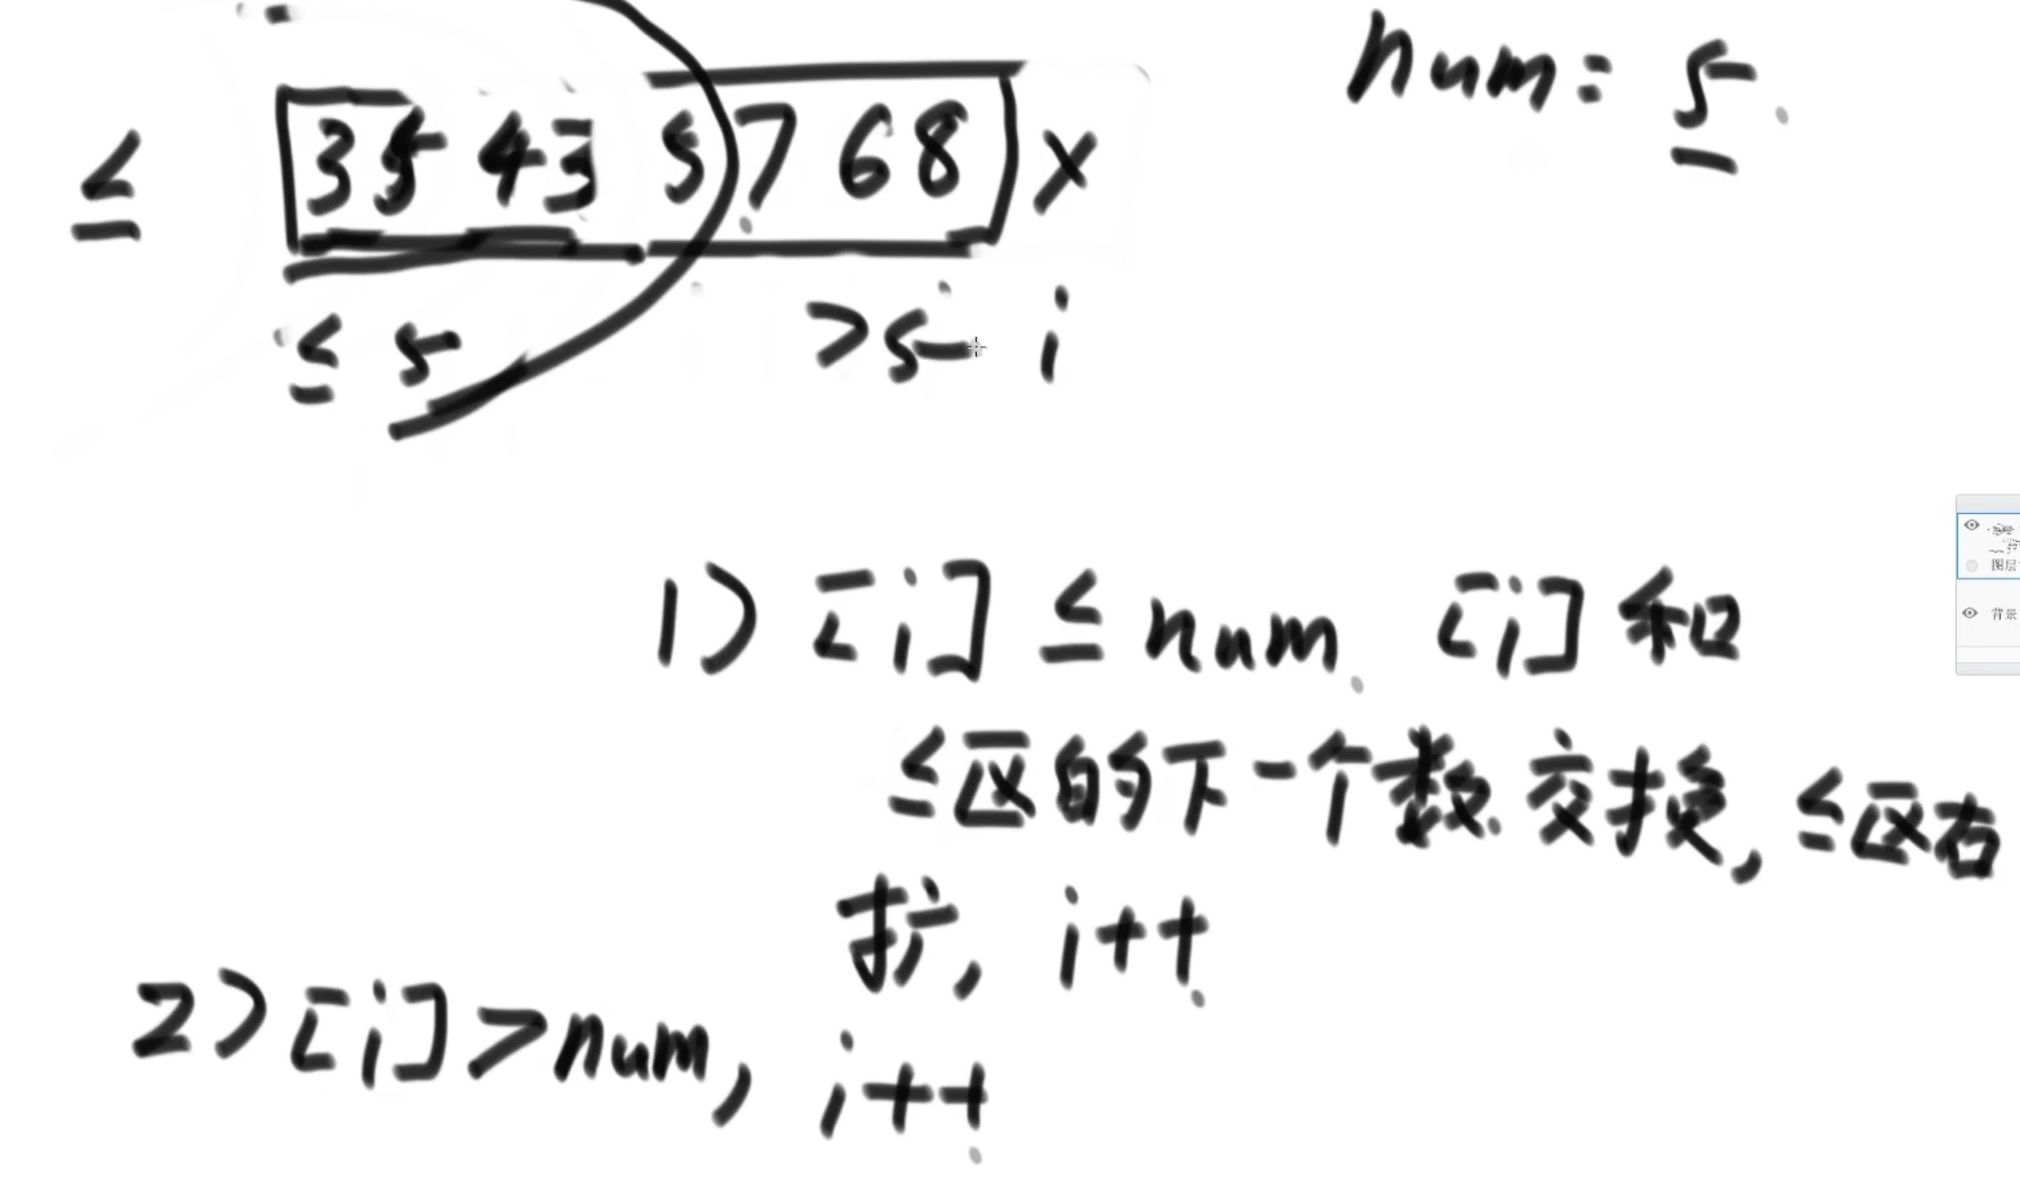 num = 5
≤ 3 5 4 3 5 7 6 8 X
≤ 5 >5 i
1) [i] ≤ num [i] 和
≤区的下一个数交换, ≤区右
扩, i++
2) [i] > num, i++
图层
背景